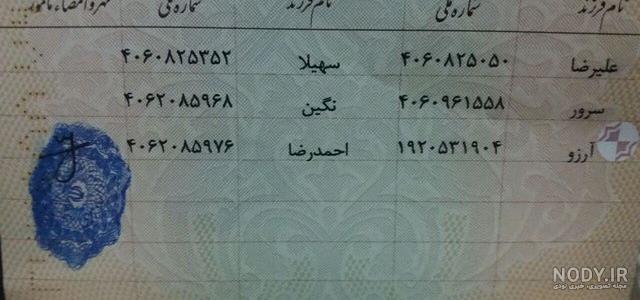 نام فرزند شماره ملی نام فرزند شماره ملی مهر و امضاء مأمور
علیرضا ۴۰۶۰۸۲۵۰۵۰ سهیلا ۴۰۶۰۸۲۵۳۵۲
سرور ۴۰۶۰۹۶۱۵۵۸ نگین ۴۰۶۲۰۸۵۹۶۸
آرزو ۱۹۲۰۵۳۱۹۰۴ احمدرضا ۴۰۶۲۰۸۵۹۷۶
NODY.IR
مجله تصویری، خبری نودی